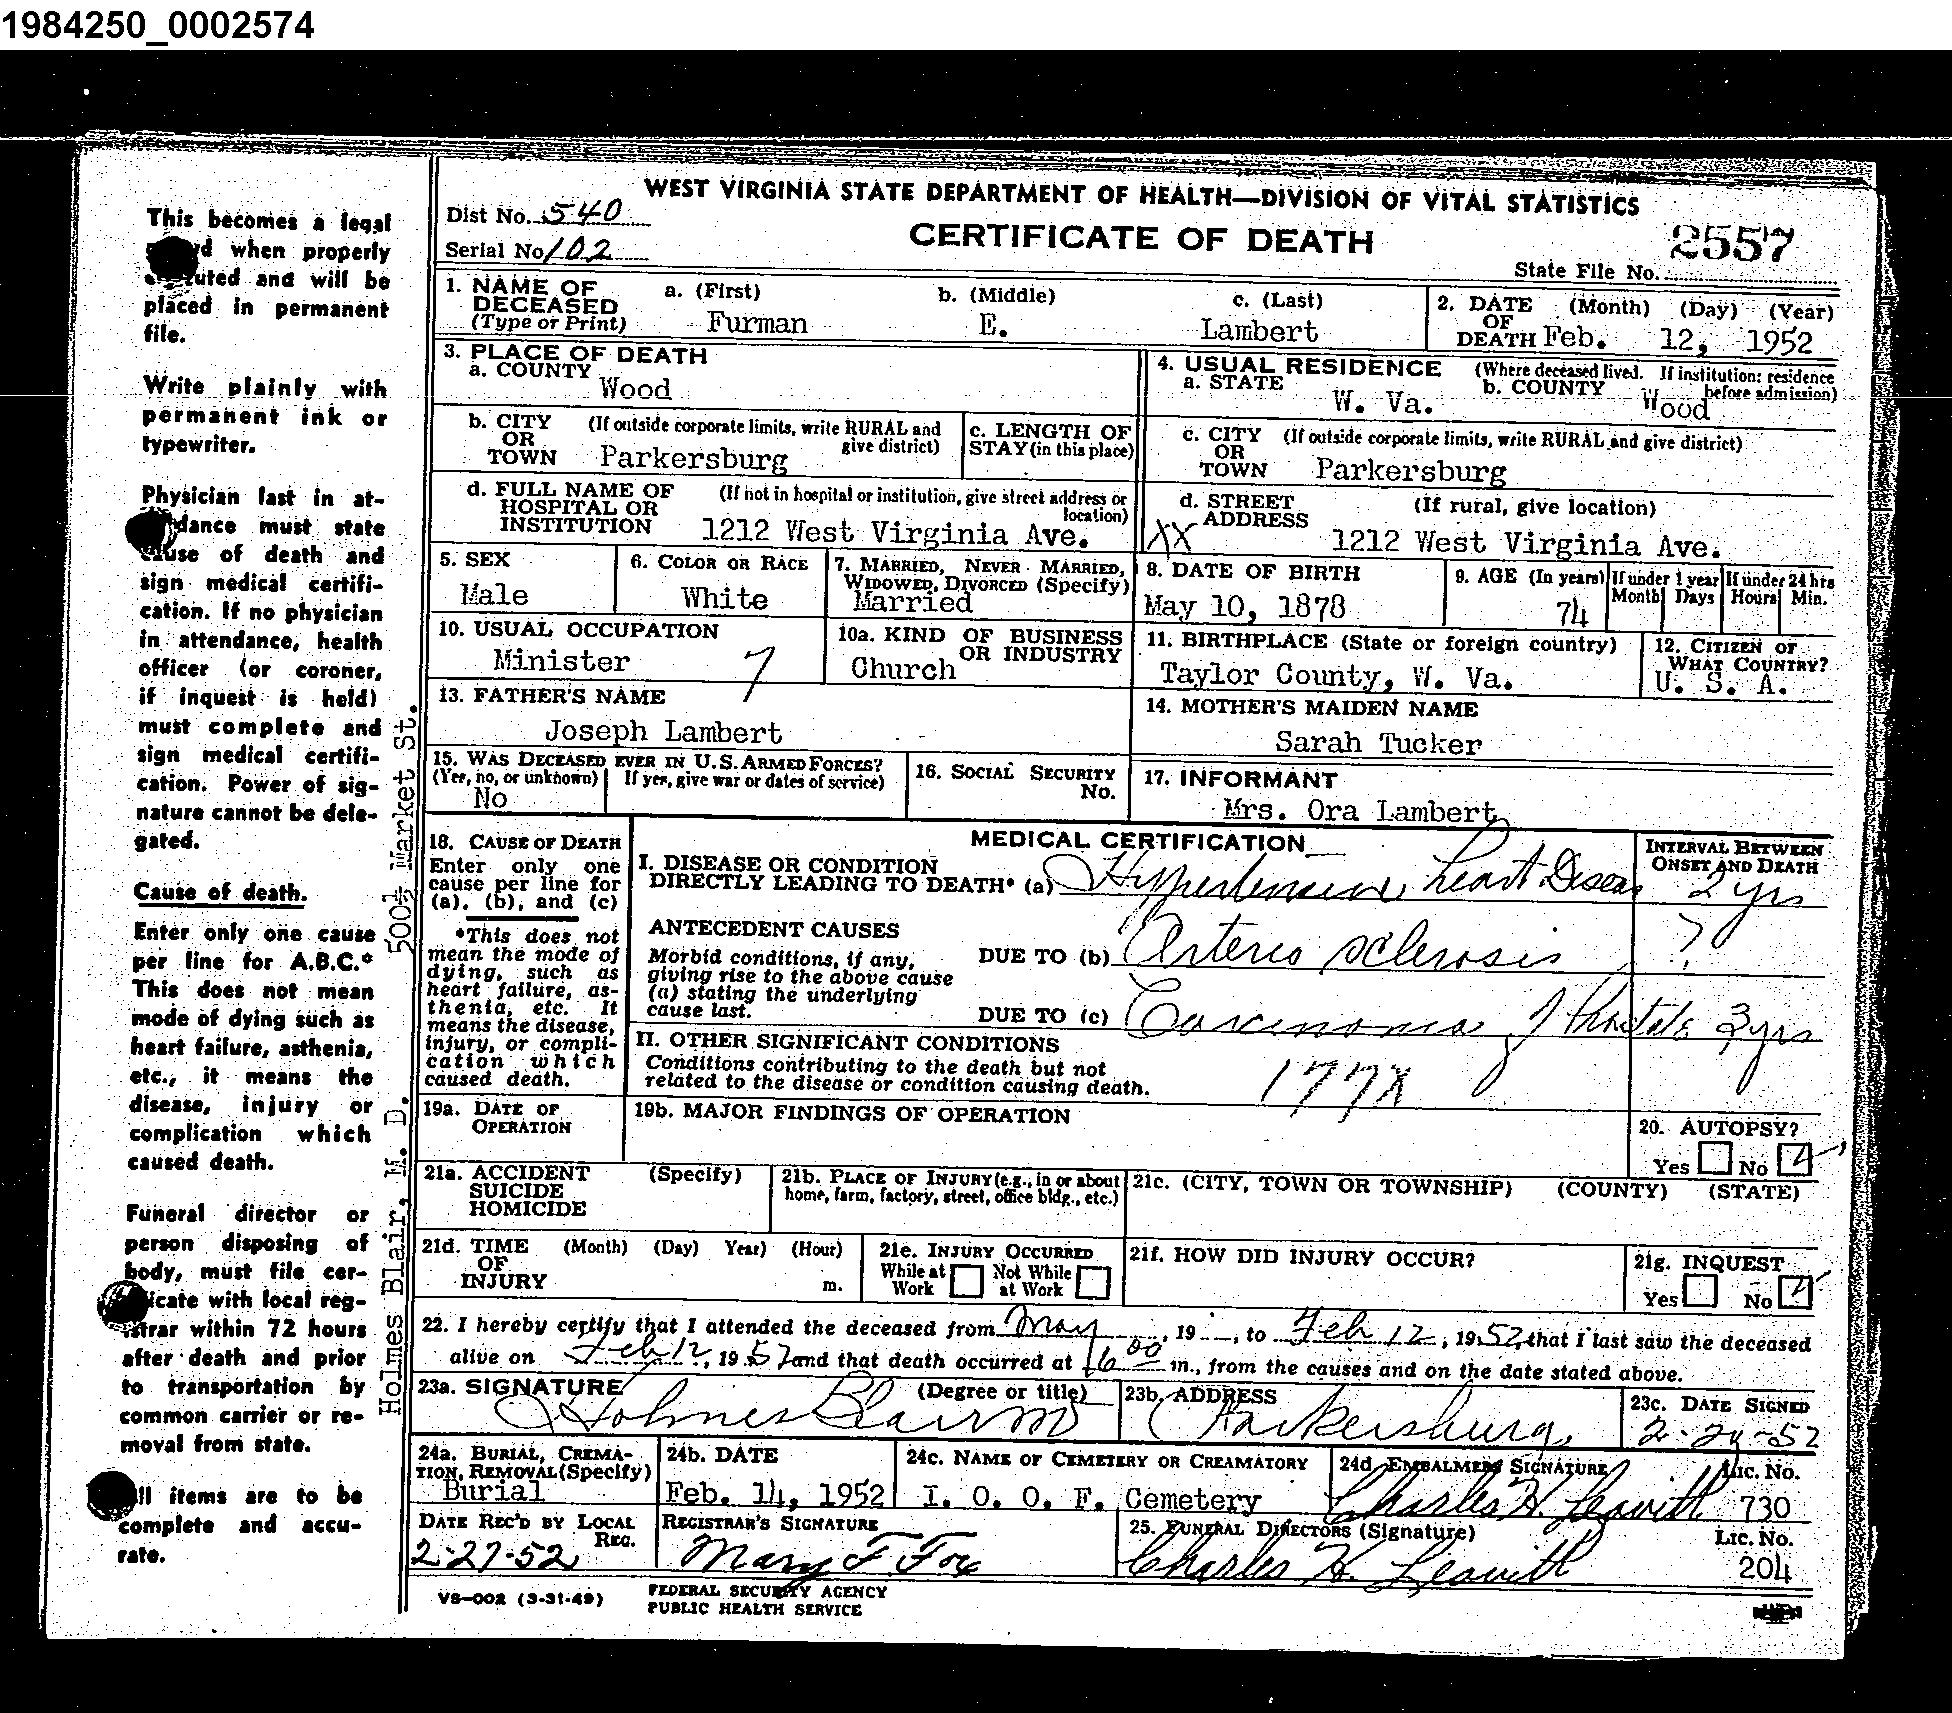 1984250_0002574
WEST VIRGINIA STATE DEPARTMENT OF HEALTH—DIVISION OF VITAL STATISTICS
Dist No. 540
Serial No 102
CERTIFICATE OF DEATH
2557
State File No.
1. NAME OF DECEASED (Type or Print)
a. (First) Furman
b. (Middle) E.
c. (Last) Lambert
2. DATE OF DEATH (Month) (Day) (Year)
Feb. 12, 1952
3. PLACE OF DEATH
a. COUNTY Wood
4. USUAL RESIDENCE (Where deceased lived. If institution: residence before admission)
a. STATE W. Va.
b. COUNTY Wood
b. CITY OR TOWN (If outside corporate limits, write RURAL and give district)
Parkersburg
c. LENGTH OF STAY (in this place)
c. CITY OR TOWN (If outside corporate limits, write RURAL and give district)
Parkersburg
d. FULL NAME OF HOSPITAL OR INSTITUTION (If not in hospital or institution, give street address or location)
1212 West Virginia Ave.
d. STREET ADDRESS (If rural, give location)
XX 1212 West Virginia Ave.
5. SEX
Male
6. COLOR OR RACE
White
7. MARRIED, NEVER MARRIED, WIDOWED, DIVORCED (Specify)
Married
8. DATE OF BIRTH
May 10, 1878
9. AGE (In years)
74
If under 1 year Month Days
If under 24 hrs Hours Min.
10. USUAL OCCUPATION
Minister 7
10a. KIND OF BUSINESS OR INDUSTRY
Church
11. BIRTHPLACE (State or foreign country)
Taylor County, W. Va.
12. CITIZEN OF WHAT COUNTRY?
U. S. A.
13. FATHER'S NAME
Joseph Lambert
14. MOTHER'S MAIDEN NAME
Sarah Tucker
15. WAS DECEASED EVER IN U.S. ARMED FORCES?
(Yes, no, or unknown) If yes, give war or dates of service)
No
16. SOCIAL SECURITY No.
17. INFORMANT
Mrs. Ora Lambert
18. CAUSE OF DEATH
Enter only one cause per line for (a), (b), and (c)
*This does not mean the mode of dying, such as heart failure, asthenia, etc. It means the disease, injury, or complication which caused death.
MEDICAL CERTIFICATION
INTERVAL BETWEEN ONSET AND DEATH
I. DISEASE OR CONDITION DIRECTLY LEADING TO DEATH* (a) Hypertensive heart Diseas 2 yrs
ANTECEDENT CAUSES
Morbid conditions, if any, giving rise to the above cause (a) stating the underlying cause last.
DUE TO (b) Arterio sclerosis ?
DUE TO (c) Carcinoma of Prostate 3 yrs
II. OTHER SIGNIFICANT CONDITIONS
Conditions contributing to the death but not related to the disease or condition causing death.
177X
19a. DATE OF OPERATION
19b. MAJOR FINDINGS OF OPERATION
20. AUTOPSY?
Yes No
21a. ACCIDENT SUICIDE HOMICIDE (Specify)
21b. PLACE OF INJURY (e.g., in or about home, farm, factory, street, office bldg., etc.)
21c. (CITY, TOWN OR TOWNSHIP) (COUNTY) (STATE)
21d. TIME OF INJURY (Month) (Day) Year) (Hour) m.
21e. INJURY OCCURRED
While at Work Not While at Work
21f. HOW DID INJURY OCCUR?
21g. INQUEST
Yes No
22. I hereby certify that I attended the deceased from May, 19 , to Feb 12, 1952, that I last saw the deceased
alive on Feb 12, 1952 and that death occurred at 6 00 m., from the causes and on the date stated above.
23a. SIGNATURE (Degree or title)
Holmes Blair MD
23b. ADDRESS
Parkersburg
23c. DATE SIGNED
24a. BURIAL, CREMATION, REMOVAL (Specify)
Burial
24b. DATE
Feb. 14, 1952
24c. NAME OF CEMETERY OR CREAMATORY
I. O. O. F. Cemetery
24d. EMBALMERS SIGNATURE Lic. No.
Charles H. Leavitt 730
DATE REC'D BY LOCAL REG.
2-27-52
REGISTRAR'S SIGNATURE
Mary F Fox
25. FUNERAL DIRECTORS (Signature) Lic. No.
Charles H. Leavitt 204
VS-002 (3-31-49)
FEDERAL SECURITY AGENCY
PUBLIC HEALTH SERVICE
This becomes a legal
when properly
and will be
placed in permanent
file.
Write plainly with
permanent ink or
typewriter.
Physician last in at-
dance must state
cause of death and
sign medical certifi-
cation. If no physician
in attendance, health
officer (or coroner,
if inquest is held)
must complete and
sign medical certifi-
cation. Power of sig-
nature cannot be dele-
gated.
Cause of death.
Enter only one cause
per line for A.B.C.*
This does not mean
mode of dying such as
heart failure, asthenia,
etc., it means the
disease, injury or
complication which
caused death.
Funeral director or
person disposing of
body, must file cer-
icate with local reg-
istrar within 72 hours
after death and prior
to transportation by
common carrier or re-
moval from state.
All items are to be
complete and accu-
rate.
Holmes Blair, M. D. 500½ Market St.